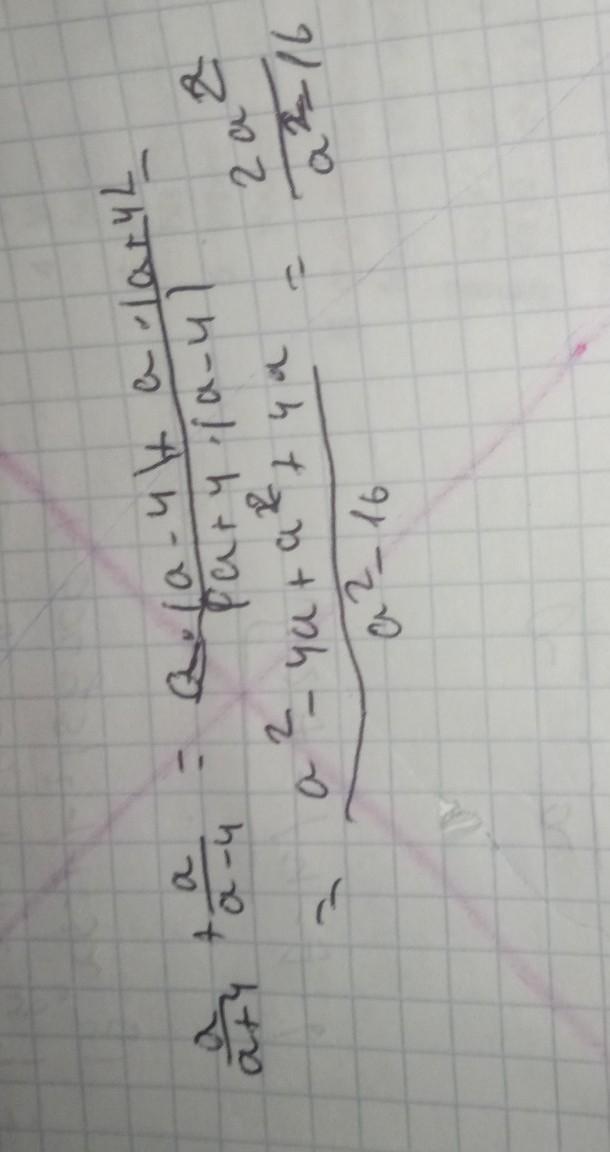 a/(a+4) + a/(a-4) = (a·(a-4)+a·(a+4))/((a+4·(a-4)) =
= (a²-4a+a²+4a)/(a²-16) = 2a²/(a²-16)